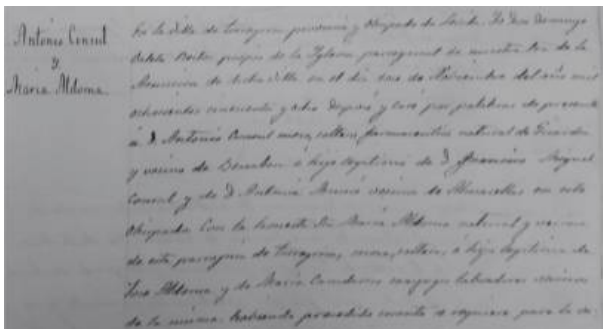 Antonio Consul
y
Maria Aldoma
En la Villa de Torregrosa provincia y Obispado de Lérida. Yo Don Domingo
Rector propio de la Iglesia parroquial de nuestra Sra de la
Asuncion de dicha Villa en el dia de Noviembre del año mil
ochocientos cincuenta y ocho Desposé y por palabras de presente
á D. Antonio Consul mozo, soltero, natural de
y vecino de é hijo legitimo de D. Francisco Miguel
Consul y de Dª Antonia vecinos de en este
Obispado. Con la honesta Maria Aldoma natural y vecina
de esta parroquia de Torregrosa, moza, soltera, é hija legitima de
José Aldoma y de Maria conyuges labradores vecinos
de la misma. Habiendo precedido cuanto se requiere para la